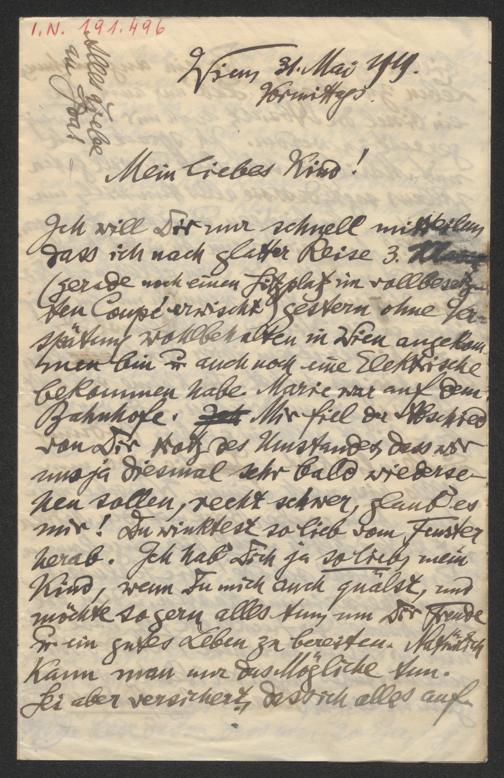 I.N. 191.496
Alles Liebe
an Dorl
Wien 31. Mai 1919.
Vormittags.
Mein liebes Kind!
Ich will Dir nur schnell mitteilen
dass ich nach glatter Reise 3.
(gerade noch einen Sitzplatz im vollbesetz-
ten Coupé erwischt) gestern ohne Ver-
spätung wohlbehalten in Wien angekom
men bin u auch noch eine Elektrische
bekommen habe. Marie war auf dem
Bahnhofe. Mir fiel der Abschied
von Dir trotz des Umstandes, dass wir
uns ja diesmal sehr bald wiederse-
hen sollen, recht schwer, glaub' es
mir! Du winktest so lieb vom Fenster
herab. Ich hab' Dich ja so lieb, mein
Kind, wenn Du mich auch quälst, und
möchte so gern alles tun, um Dir Freude
u ein gutes Leben zu bereiten. Natürlich
kann man nur das Mögliche tun.
Sei aber versichert, dass ich alles auf-